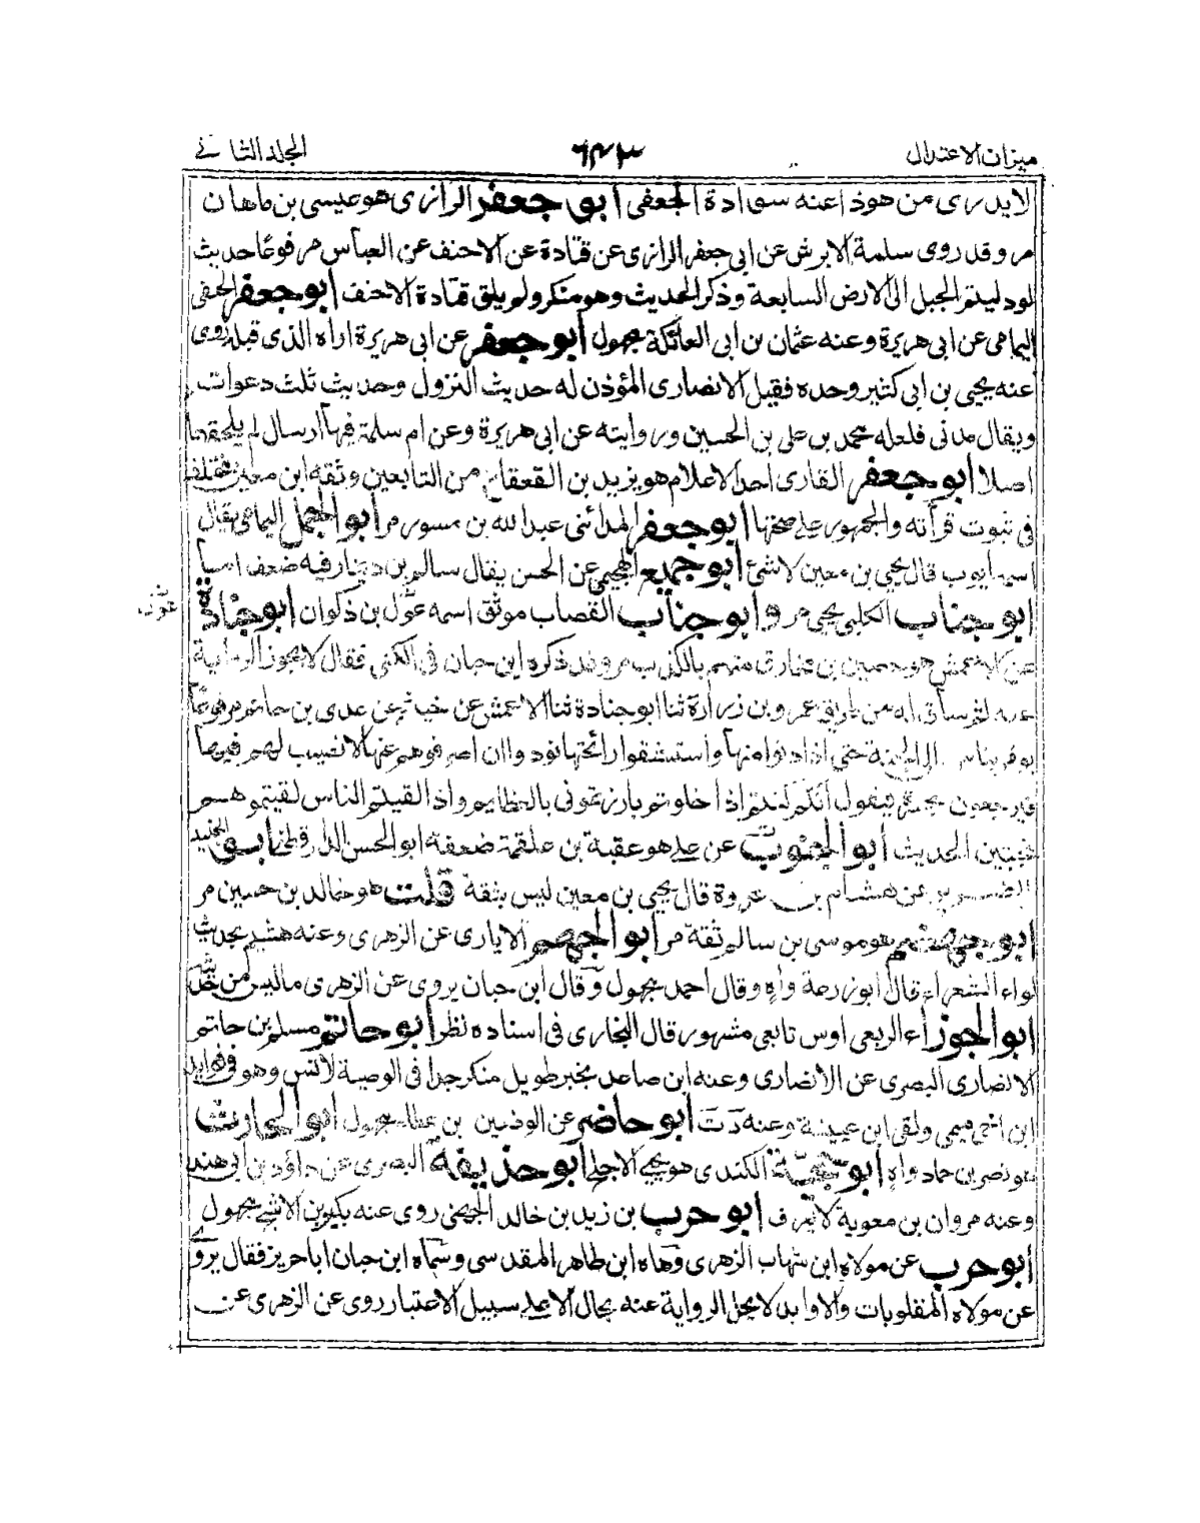 ميزان الاعتدال
٦٤٣
المجلد الثاني
لا يدرى من هو ذا عنه سوادة الجعفى ابو جعفر الرازى هو عيسى بن ماهان
مر وقد روى سلمة الابرش عن ابى جعفر الرازى عن قتادة عن الاحنف عن العباس مرفوعا حديث
لو دليتم الحبل الى الارض السابعة وذكر الحديث وهو منكر ولم يلق قتادة الاحنف ابو جعفر الحنفى
اليمامى عن ابى هريرة وعنه عثمان بن ابى العاتكة مجهول ابو جعفر عن ابى هريرة اراه الذى قبله روى
عنه يحيى بن ابى كثير وحده فقيل الانصارى المؤذن له حديث النزول وحديث ثلث دعوات
ويقال مدنى فلعله محمد بن على بن الحسين وروايته عن ابى هريرة وعن ام سلمة فيها ارسال لم يلحقهما
اصلا ابو جعفر القارى احد الاعلام هو يزيد بن القعقاع من التابعين وثقه ابن معين
فى ثبوت قرأته والجمهور على صحتها ابو جعفر المدائنى عبد الله بن مسور مر ابو الجمل اليمامى يقال
اسمه ايوب قال يحيى بن معين لا شئ ابو جميع الهجيمى عن الحسن يقال سالم بن دينار فيه ضعف
ابو جناب الكلبى يحيى مر و ابو جناب القصاب موثق اسمه عون بن ذكوان ابو جنادة
عن الاعمش هو حصين بن مخارق متهم بالكذب مر وقد ذكره ابن حبان فى الكنى فقال لا يجوز الرواية
عنه ثم ساق له من طريق عمرو بن زرارة ثنا ابو جنادة ثنا الاعمش عن خيثمة عن عدى بن حاتم مرفوعا
يؤمر بناس الى الجنة حتى اذا دنوا منها واستنشقوا رائحتها نودوا ان اصرفوهم عنها لا نصيب لهم فيها
فيرجعون فيقول انكم كنتم اذا خلوتم بارزتمونى بالعظايم واذا لقيتم الناس لقيتموهم
مخبتين الحديث ابو الجنوب عن على هو عقبة بن علقمة ضعفه ابو الحسن الدارقطنى ابو الجنيد
الضرير عن هشام بن عروة قال يحيى بن معين ليس بثقة قلت هو خالد بن حسين مر
ابو جهضم هو موسى بن سالم ثقة مر ابو الجهم الايارى عن الزهرى وعنه هشيم بحديث
لواء الشعراء قال ابو زرعة واه وقال احمد مجهول وقال ابن حبان يروى عن الزهرى ما ليس من حديثه
ابو الجوزاء الربعى اوس تابعى مشهور قال البخارى فى اسناده نظر ابو حاتم مسلم بن حاتم
الانصارى البصرى عن الانصارى وعنه ابن صاعد بخبر طويل منكر جدا فى الوصية لانس وهو فى فوايد
ابن اخى ميمى ولقى ابن عيينة وعنه د ت ابو حاضر عن الوضين بن عطاء مجهول ابو الحارث
هو نصر بن حماد واه ابو حجية الكندى هو يحيى الاجلح ابو حذيفة البصرى عن داؤد بن ابى هند
وعنه مروان بن معوية لا يعرف ابو حرب بن زيد بن خالد الجهنى روى عنه بكير بن الاشج مجهول
ابو حرب عن مولاه ابن شهاب الزهرى وهاه ابن طاهر المقدسى وسماه ابن حبان ابا حريز فقال يروى
عن مولاه المقلوبات والاوابد لا يحل الرواية عنه بحال الا على سبيل الاعتبار روى عن الزهرى عن